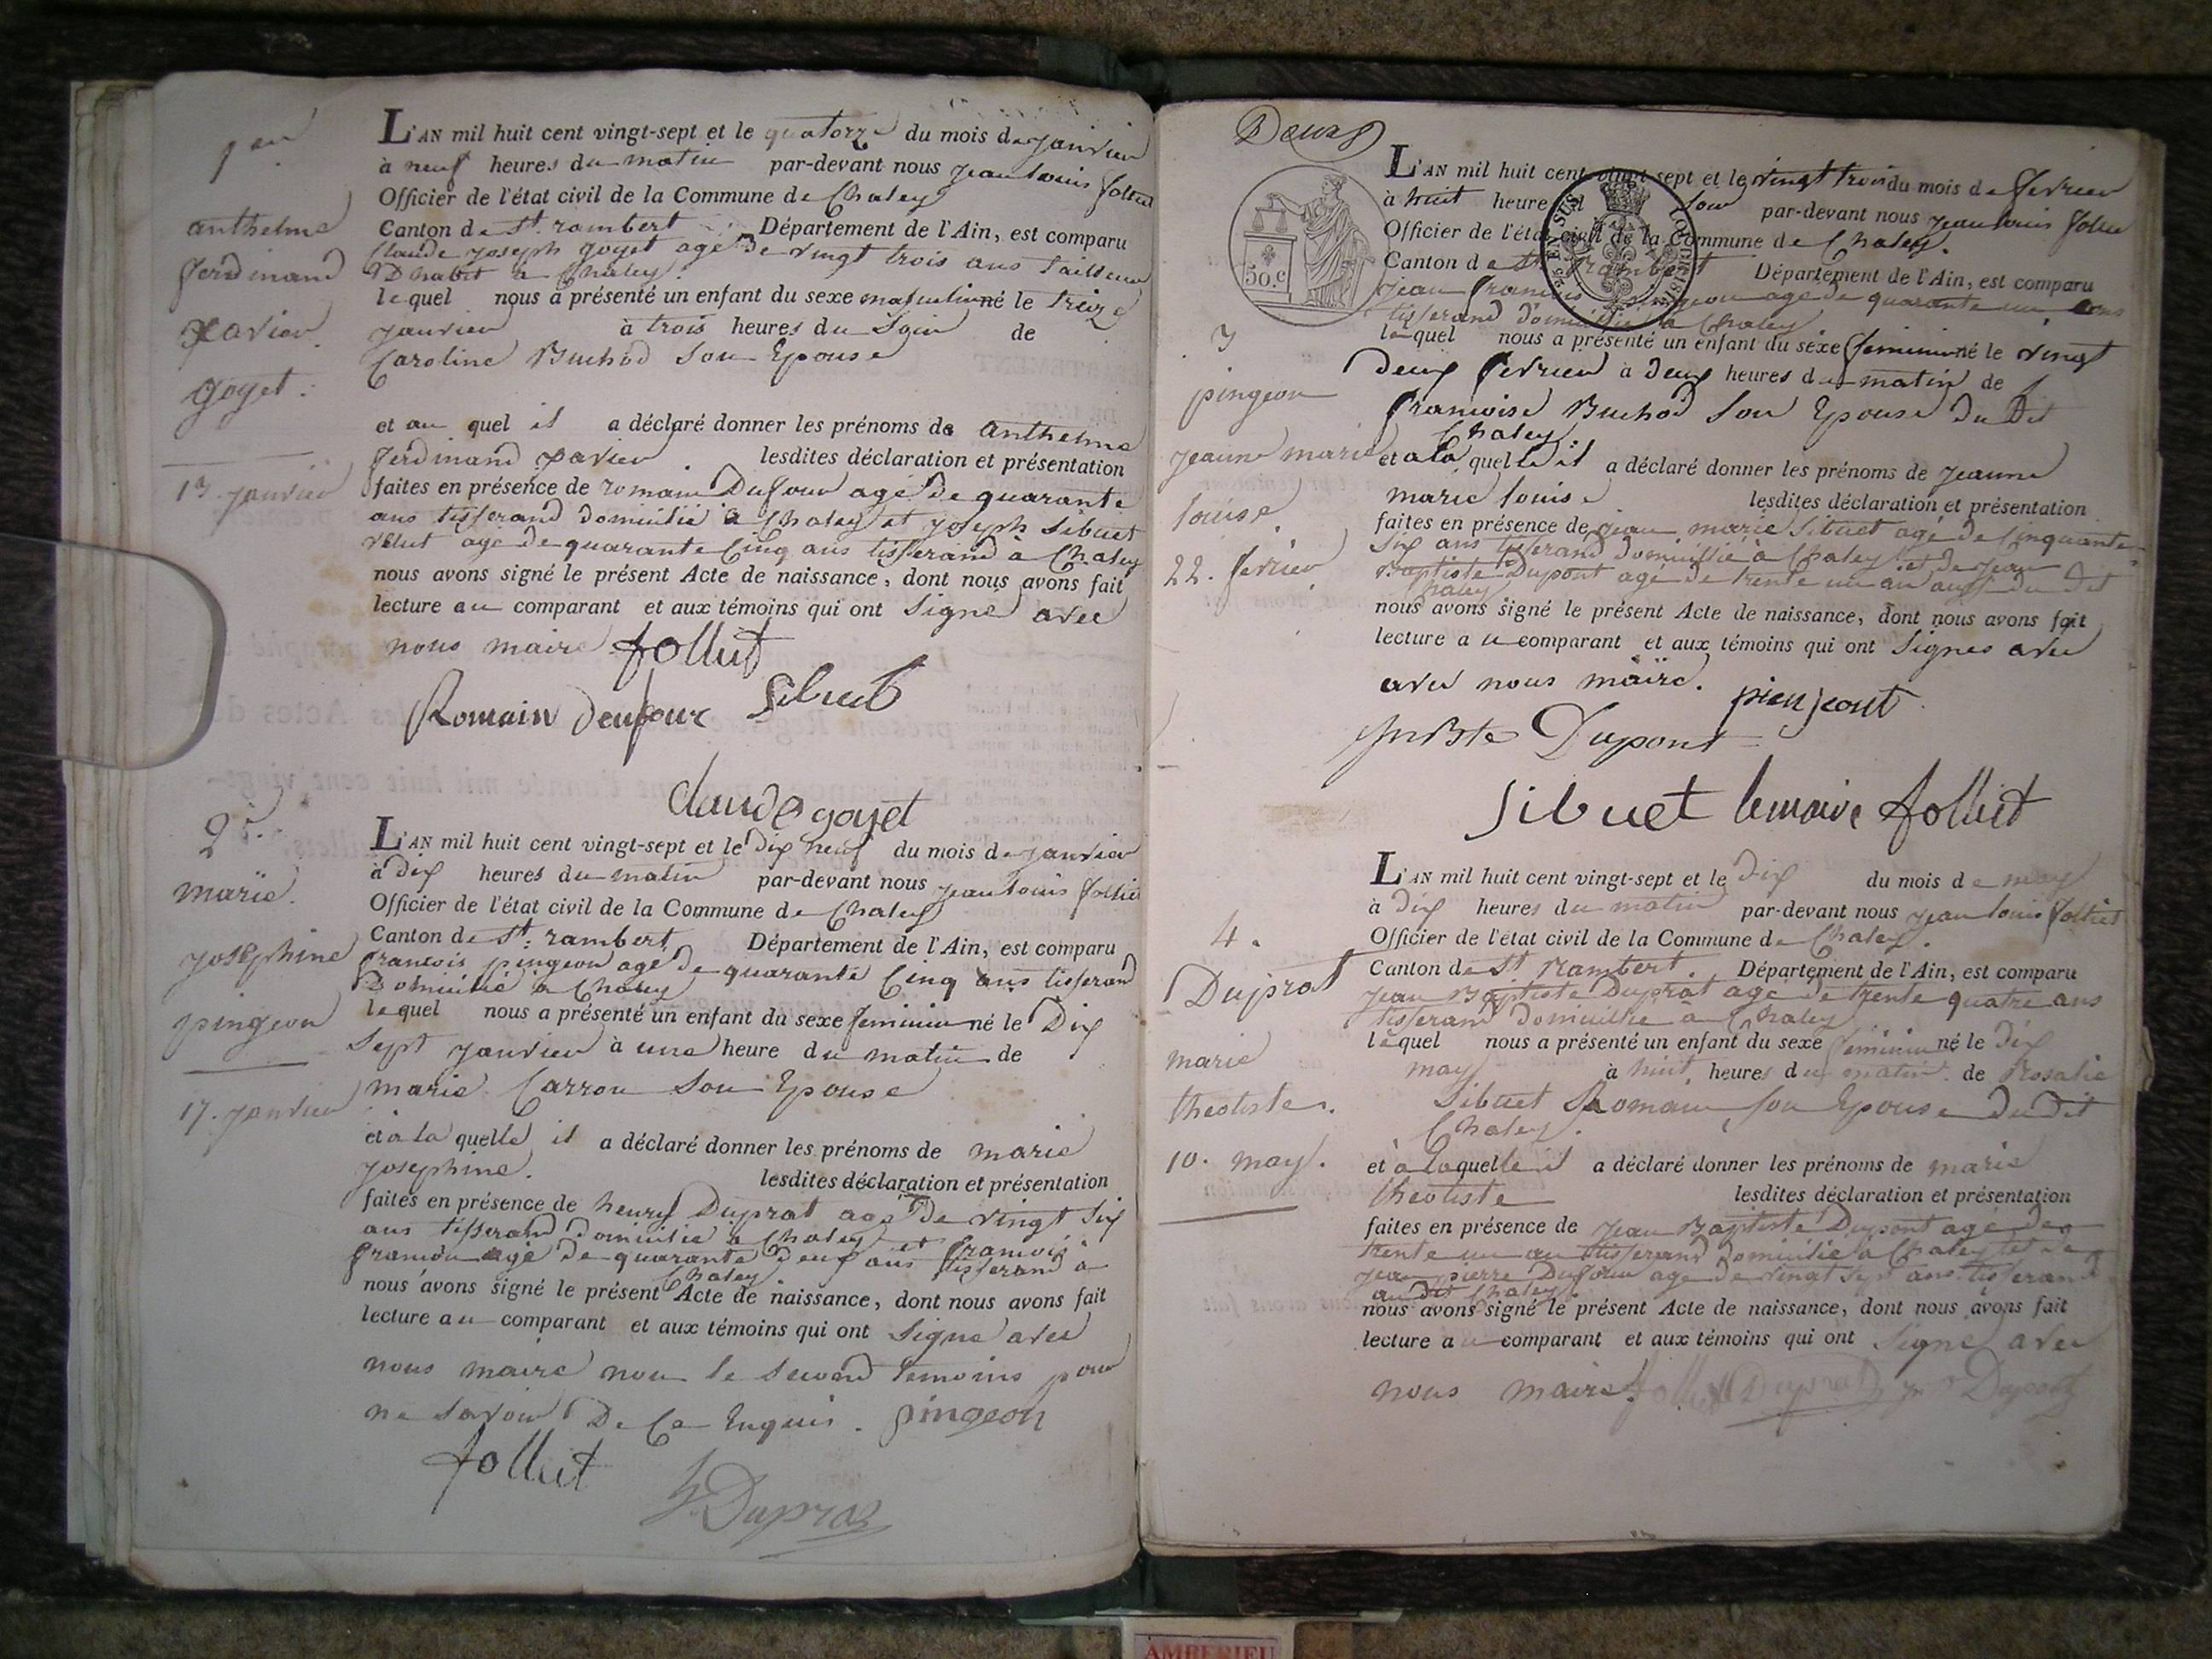 1er
anthelme
ferdinand
xavier
goyet.
13 janvier
L'AN mil huit cent vingt-sept et le quatorze du mois de janvier
à neuf heures du matin par-devant nous jean louis folliet
Officier de l'état civil de la Commune de Chaley
Canton de St rambert Département de l'Ain, est comparu
Claude joseph goyet agé de vingt trois ans tailleur
D'habit à Chaley.
lequel nous a présenté un enfant du sexe masculin né le treize
janvier à trois heures du Soir de
Caroline Buchod Son Epouse
et au quel il a déclaré donner les prénoms de anthelme
ferdinand xavier. lesdites déclaration et présentation
faites en présence de romain Dufour agé de quarante
ans tisserand domicilié à Chaley et joseph Sibuet
agé de quarante Cinq ans tisserand à Chaley
nous avons signé le présent Acte de naissance, dont nous avons fait
lecture au comparant et aux témoins qui ont Signé avec
nous maire folliet
Romain deufour Sibuet
claude goyet
2e.
marie.
josephine
pingeon
17. janvier
L'AN mil huit cent vingt-sept et le Dix neuf du mois de janvier
à Dix heures du matin par-devant nous jean louis folliet
Officier de l'état civil de la Commune de Chaley
Canton de St. rambert Département de l'Ain, est comparu
francois pingeon agé de quarante Cinq ans tisserand
Domicilié à Chaley
lequel nous a présenté un enfant du sexe feminin né le Dix
Sept janvier à une heure du matin de
marie Carron Son Epouse
et à la quelle il a déclaré donner les prénoms de marie
josephine. lesdites déclaration et présentation
faites en présence de henry Duprat agé de vingt Six
ans tisserand domicilié à Chaley et francois
agé de quarante deux ans tisserand à
Chaley
nous avons signé le présent Acte de naissance, dont nous avons fait
lecture au comparant et aux témoins qui ont Signé avec
nous maire non le Second temoins pour
ne Savoir De Ce Enquis. pingeon
folliet
h. Duprat
Deux
50. C
25 EN SUS
3
pingeon
jeanne marie
louise.
22. fevrier
L'AN mil huit cent vingt-sept et le vingt trois du mois de fevrier
à huit heures du Soir par-devant nous jean louis folliet
Officier de l'état civil de la Commune de Chaley.
Canton de St rambert Département de l'Ain, est comparu
jean francois pingeon agé de quarante un ans
tisserand domicilié à Chaley
lequel nous a présenté un enfant du sexe feminin né le vingt
deux fevrier à deux heures du matin de
francoise Buchod Son Epouse Du Dit
Chaley.
et à la quelle il a déclaré donner les prénoms de jeanne
marie louise lesdites déclaration et présentation
faites en présence de jean marie Sibuet agé de Cinquante
Six ans tisserand domicilié à Chaley et de jean
Baptiste Dupont agé de trente un an aussi du Dit
Chaley
nous avons signé le présent Acte de naissance, dont nous avons fait
lecture au comparant et aux témoins qui ont Signés avec
avec nous maire. pienjeont
jn Bte Dupont
Sibuet lemaire folliet
4.
Duprat
marie
theotiste.
10. may.
L'AN mil huit cent vingt-sept et le Dix du mois de may
à Dix heures du matin par-devant nous jean louis folliet
Officier de l'état civil de la Commune de Chaley.
Canton de St Rambert. Département de l'Ain, est comparu
jean Baptiste Duprat agé de trente quatre ans
tisserand domicilié à Chaley
lequel nous a présenté un enfant du sexe feminin né le Dix
may à huit heures du matin de Rosalie
Sibuet Romain Son Epouse Dudit
Chaley.
et à laquelle il a déclaré donner les prénoms de marie
theotiste lesdites déclaration et présentation
faites en présence de jean Baptiste Dupont agé de
trente un an tisserand domicilié à Chaley et de
jean pierre Dufour agé de vingt Sept ans tisserand
au dit Chaley.
nous avons signé le présent Acte de naissance, dont nous avons fait
lecture au comparant et aux témoins qui ont Signé avec
nous maire. folliet Duprat Dupont
AMBERIEU